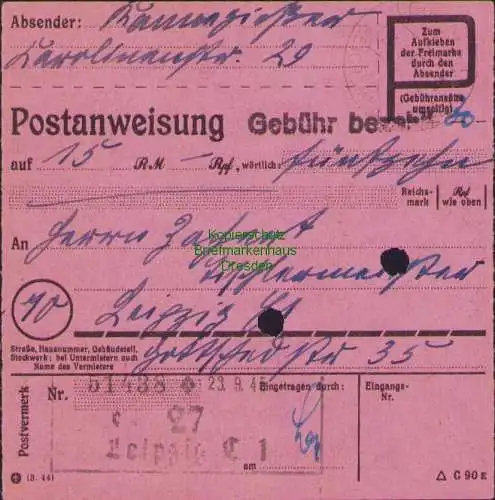 Absender: Kannegießer
Karolinenstr. 29
Zum
Aufkleben
der Freimarke
durch den
Absender
(Gebührensätze
umseitig)
Postanweisung Gebühr bezahlt
auf 15 RM — Rpf, wörtlich: fünfzehn
Reichs- Rpf
mark wie oben
An Herrn
Kopierschutz
Briefmarkenhaus
Dresden
10 Leipzig C1
35
Straße, Hausnummer, Gebäudeteil,
Stockwerk; bei Untermietern auch
Name des Vermieters
Postvermerk
Nr. 51438 23.9.4 Eingetragen durch: Eingangs-
Nr.
c 27
Leipzig C 1
am
(8. 44) △ C 90 E